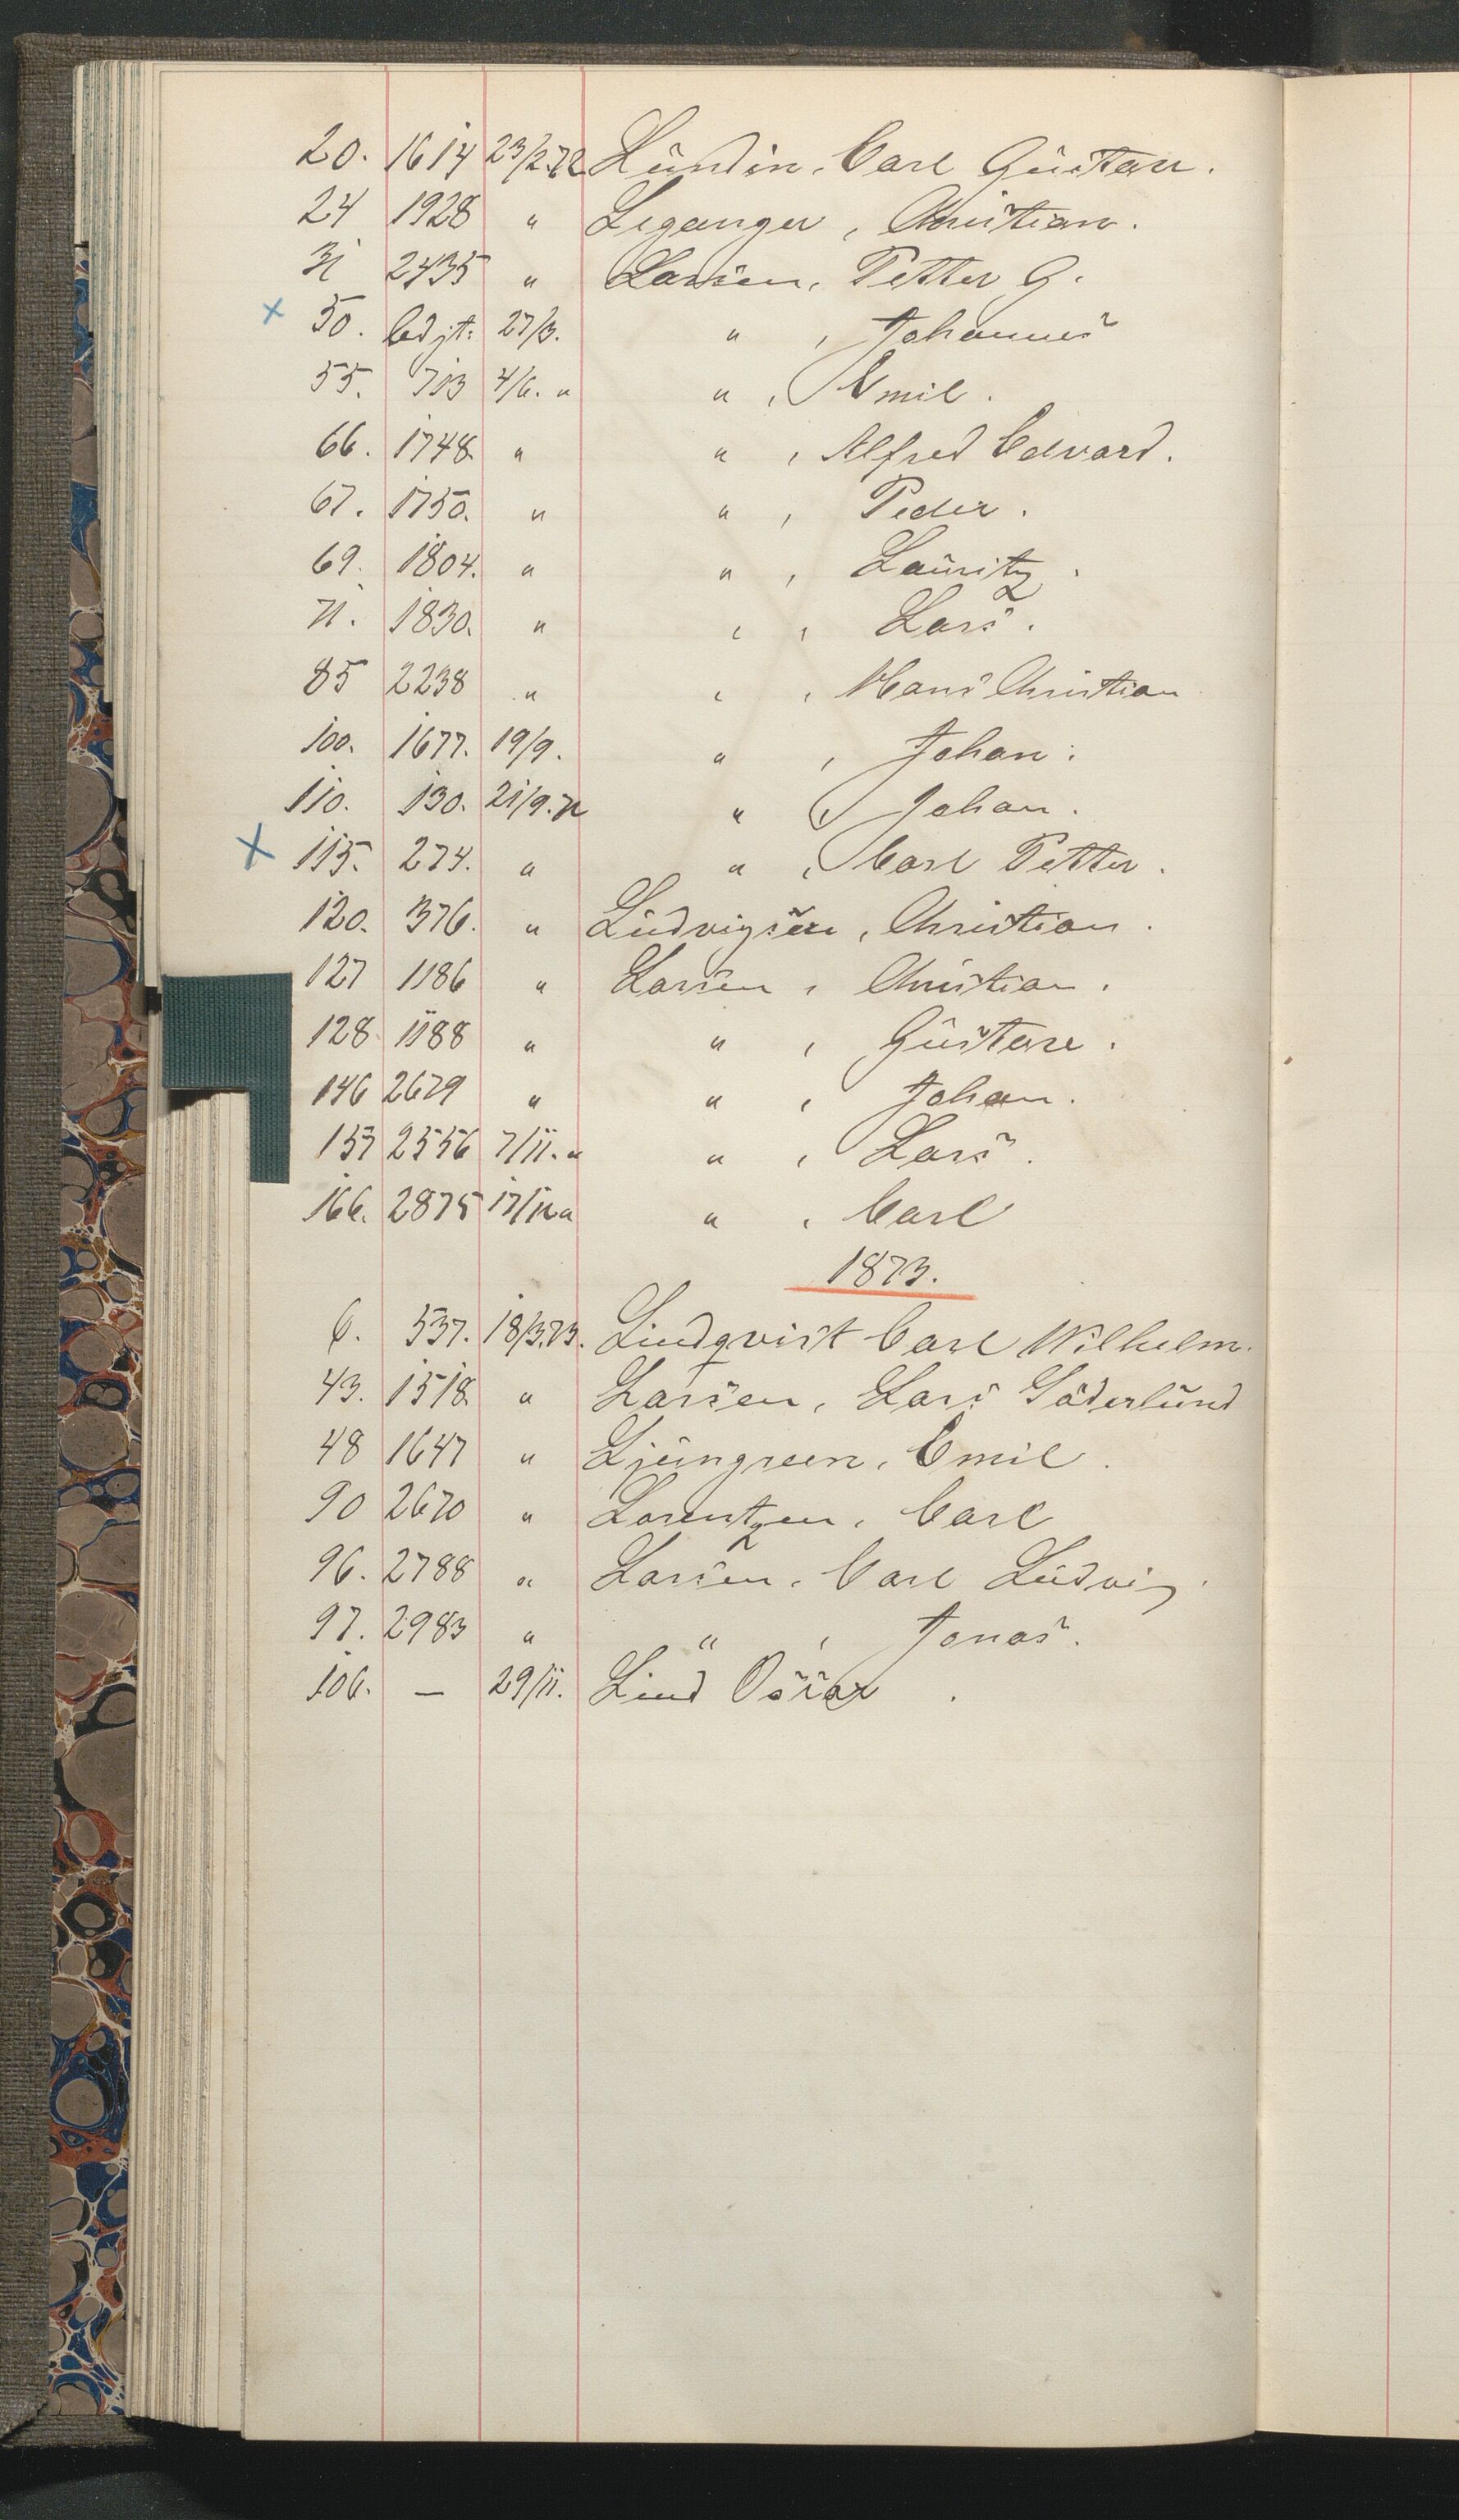 20. 1614 23/2.72 Lundin, Carl Gustav.
24 1928 " Leganger, Christian.
31 2435 " Larsen, Petter G.
x 50. 27/3. " , Johannes
55. 713 4/6. " " , Emil.
66. 1748. " " , Alfred Edvard.
67. 1750. " " , Peder.
69. 1804. " " , Lauritz.
71. 1830. " " , Lars.
85 2238 " " , Hans Christian
100. 1677. 19/9. " , Johan.
110. 130. 21/9.72 " , Johan.
x 115. 274. " " , Carl Petter.
120. 376. " Ludvigsen, Christian.
127 1186 " Larsen, Christian.
128 1188 " " , Gustav.
146 2679 " " , Johan.
157 2556 7/11. " " , Lars.
166. 2875 " " , Carl
1873.
6. 537. 18/3.73. Lindqvist Carl Wilhelm.
43. 1518 " Larsen, Lars Söderlund
48 1647 " Ljungreen, Emil.
90 2670 " Lorentzen, Carl
96. 2788 " Larsen, Carl Ludvig.
97. 2983 " " , Jonas.
106. — 29/11. Lind Oscar.